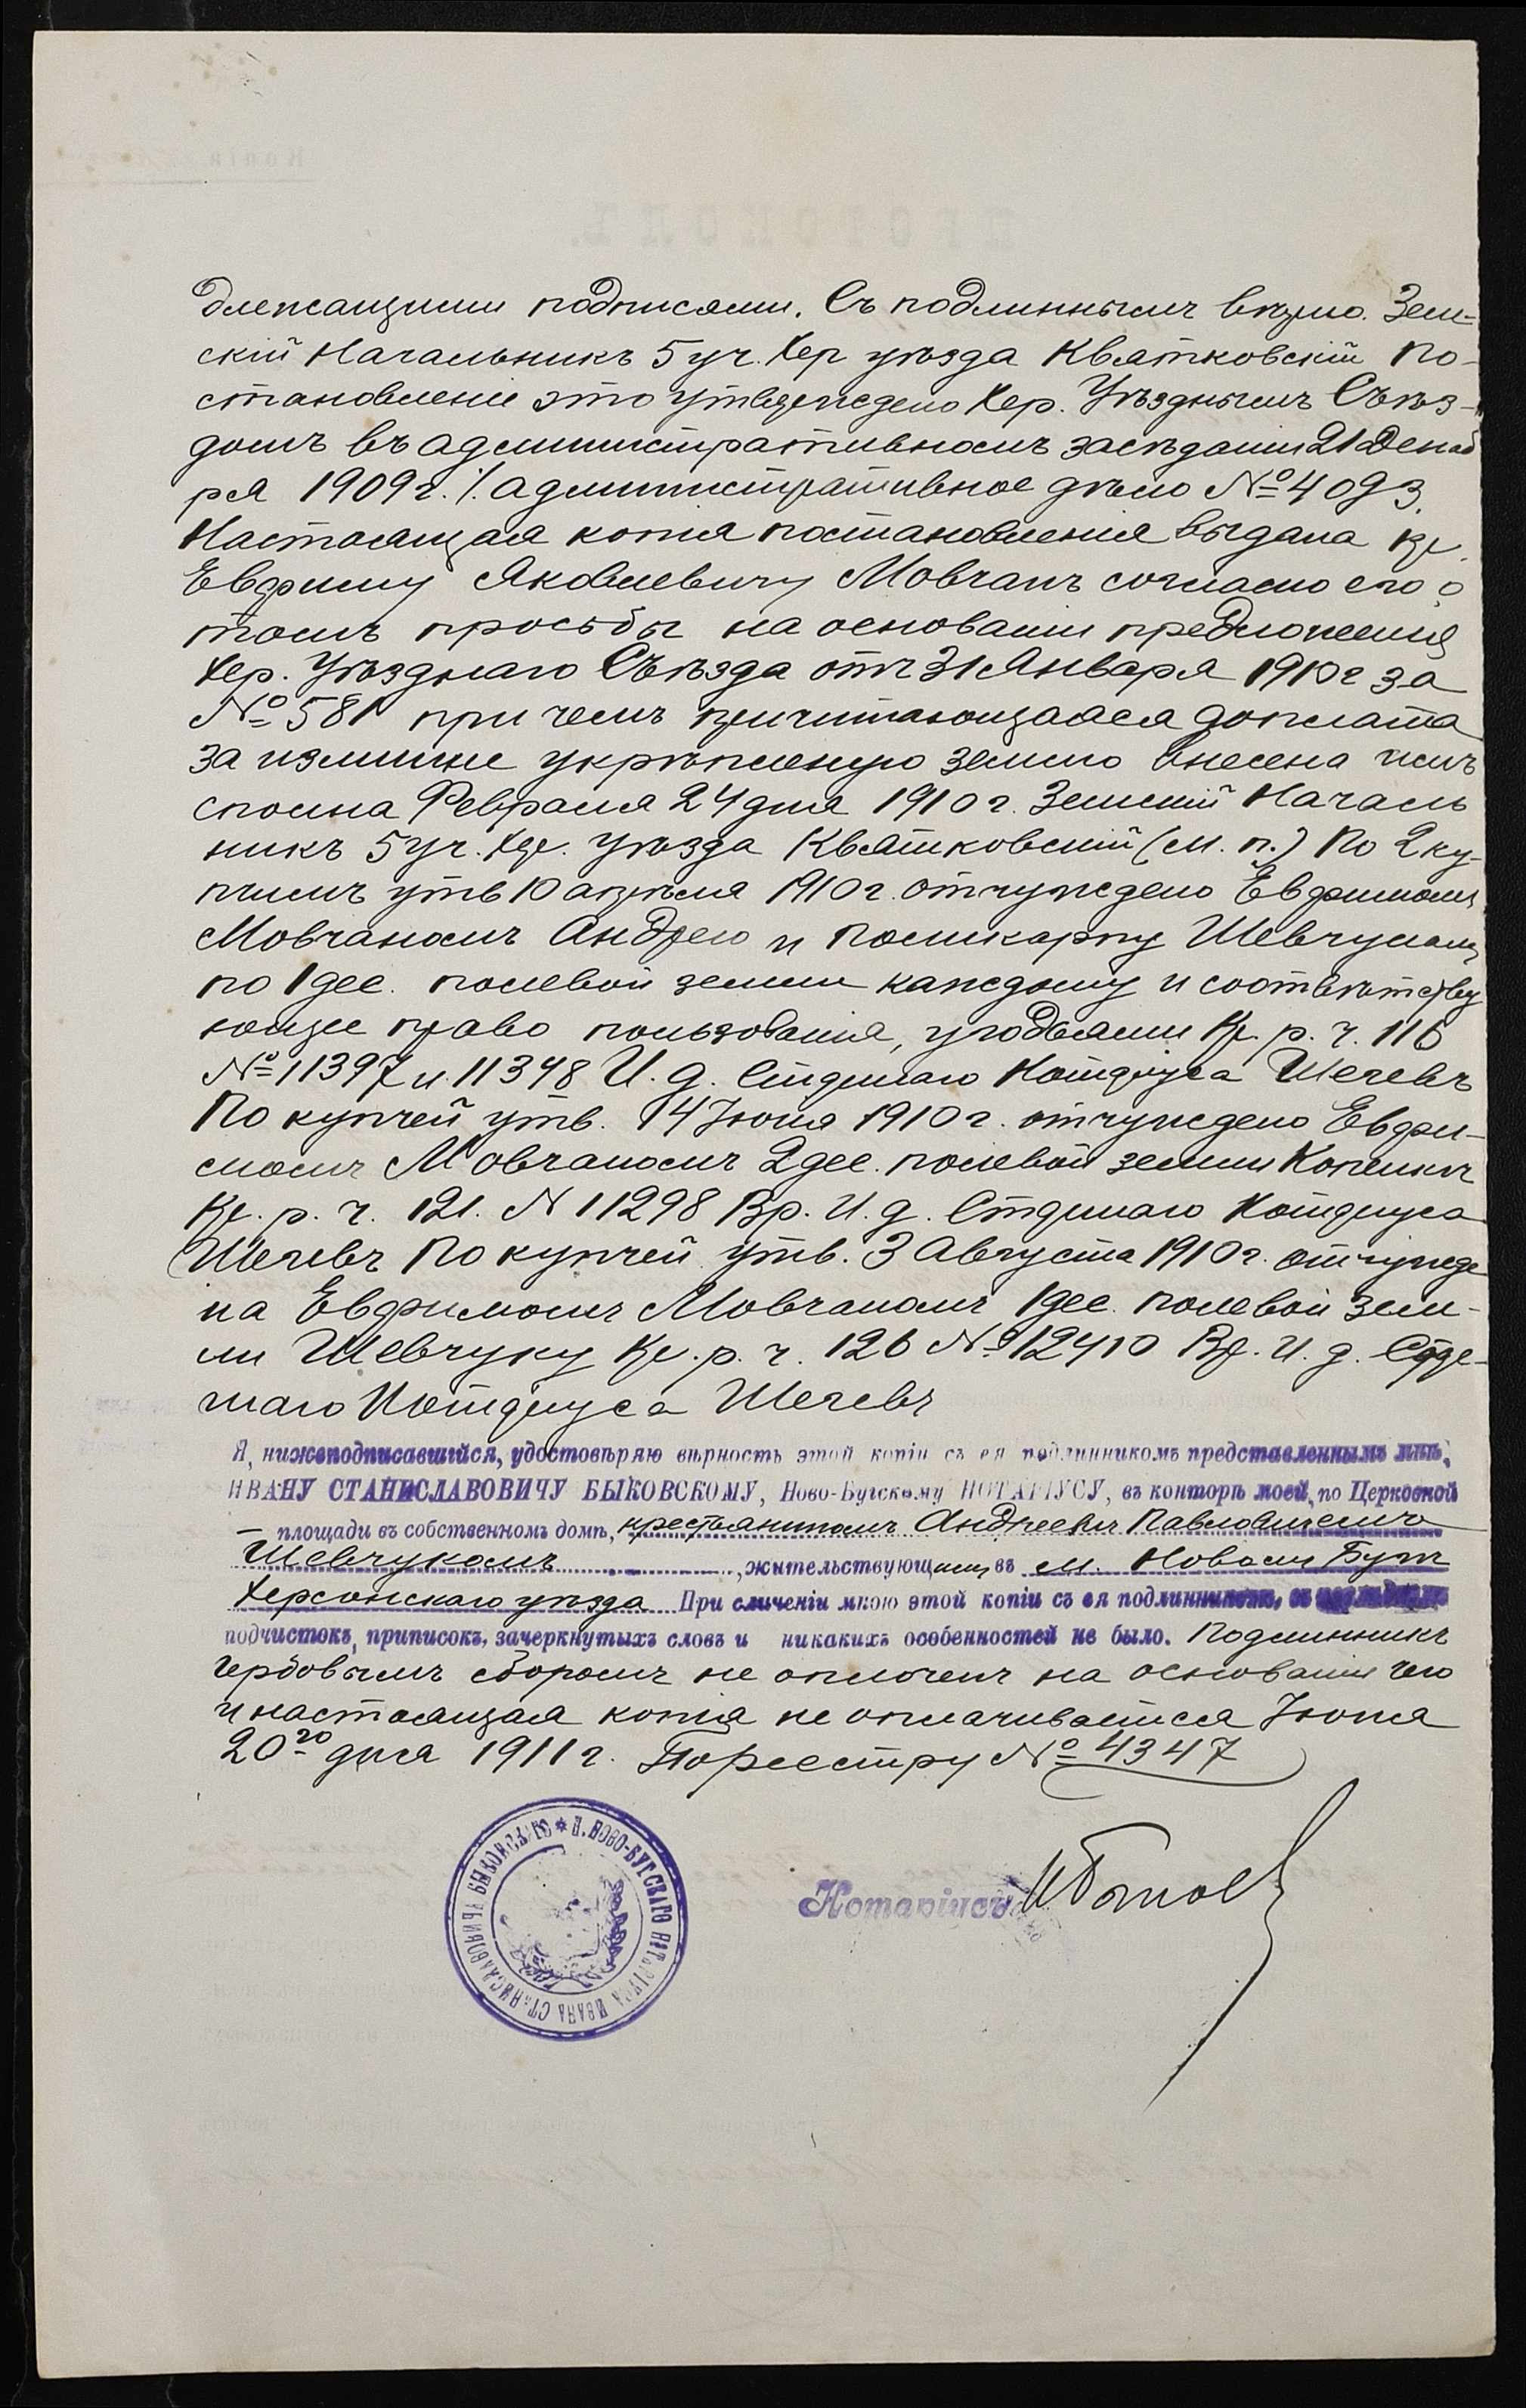 длежащими подписями. Съ подлиннымъ вѣрно. Зем-
скій Начальникъ 5 уч. Хер уѣзда Квятковскій По-
становленіе это утверждено Хер. Уѣзднымъ Съѣз-
домъ въ административномъ засѣданіи 21 Декаб
ря 1909 г. /. административное дѣло № 4093.
Настоящая копія постановленія выдана кр.
Евфиму Яковлевичу Мовчанъ согласно его о
томъ просьбы на основаніи предложенія
Хер. Уѣзднаго Съѣзда отъ 31 Января 1910 г за
№ 581 при чемъ причитающаяся доплата
за излишне укрѣпленную землю внесена имъ
сполна Февраля 24 дня 1910 г. Земскій Началь
никъ 5 уч. Хер. уѣзда Квятковскій (М. п.) По 2 ку-
пчимъ утв 10 апрѣля 1910 г. отчуждено Евфимомъ
Мовчаномъ Андрею и Поликарпу Шевчукамъ
по 1 дес. полевой земли каждому и соотвѣтству
ющее право пользованія, угодьями Кр. р. ч. 116
№ 11397 и 11398 И. д. Старшаго Нотаріуса Шегевъ
По купчей утв. 14 Іюня 1910 г. отчуждено Евфи-
момъ Мовчаномъ 2 дес. полевой земли
Кр. р. ч. 121. N 11298 Вр. И. д. Старшаго Нотаріуса
Шегевъ По купчей утв. 3 Августа 1910 г. отчужде
на Евфимомъ Мовчаномъ 1 дес. полевой зем-
ли Шевчуку Кр. р. ч. 126 № 12410 Вр. И. д. Стар-
шаго Нотаріуса Шегевъ
Я, нижеподписавшійся, удостовѣряю вѣрность этой копіи съ ея подлинникомъ представленнымъ мнѣ,
ИВАНУ СТАНИСЛАВОВИЧУ БЫКОВСКОМУ, Ново-Бугскому НОТАРІУСУ, въ конторѣ моей, по Церковной
— площади въ собственномъ домѣ, крестьяниномъ Андреемъ Павловичемъ
Шевчукомъ, жительствующимъ въ м. Новомъ Бугѣ
Херсонскаго уѣзда При сличеніи мною этой копіи съ ея подлинникомъ, въ
подчистокъ, приписокъ, зачеркнутыхъ словъ и никакихъ особенностей не было. Подлинникъ
гербовымъ сборомъ не оплоченъ на основаніи чего
и настоящая копія не оплачивается Іюня
20го дня 1911 г. По реестру № 4347
* Н. НОВО-БУГСКАГО НОТАРІУСА ИВАНА СТАНИСЛАВОВИЧА БЫКОВСКАГО
Нотаріусъ